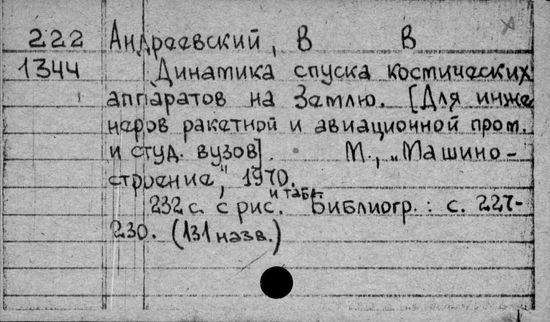 222 Андреевский, В В
1344 Динамика спуска космических
аппаратов на Землю. [Для инже
неров ракетной и авиационной пром.
и студ. вузов]. М., „Машино-
строение", 1970.
232 с. с рис. и табл. Библиогр.: с. 227-
230. (131 назв.)